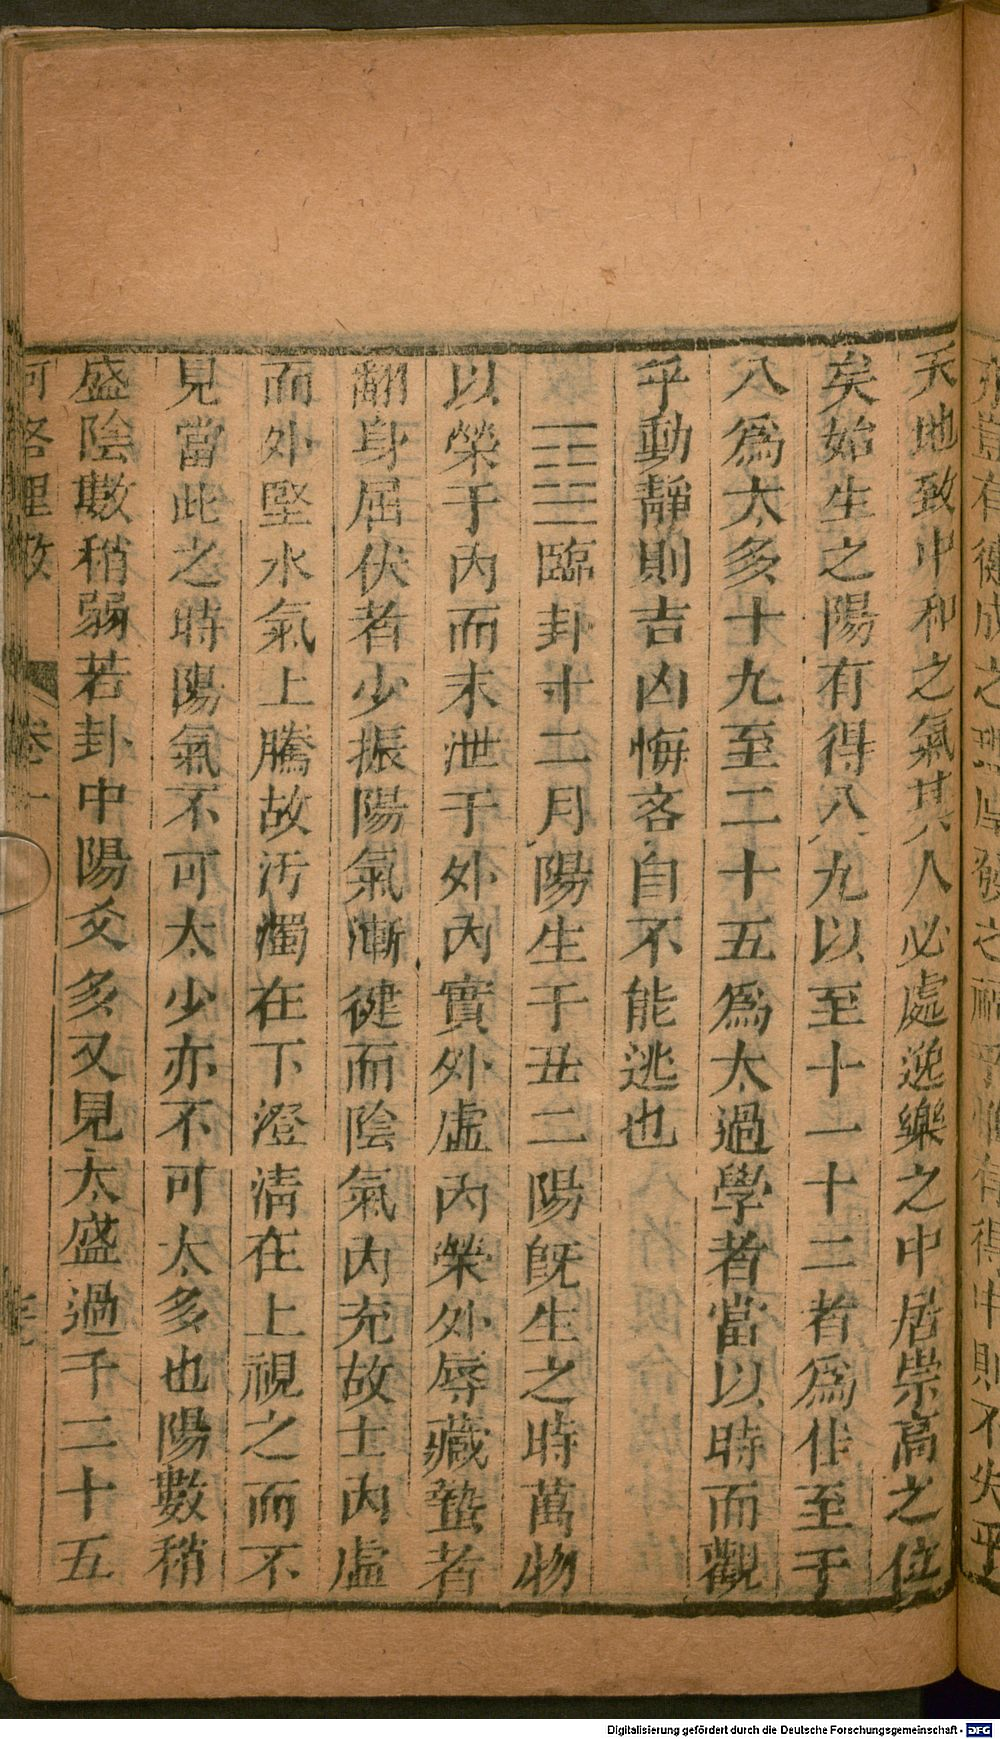 天地致中和之氣其人必處逸樂之中居崇高之位
矣始生之陽有得八九以至十一十二者爲佳至于
八爲太多十九至二十五爲太過學者當以時而觀
乎動靜則吉凶悔吝自不能逃也
臨卦十二月陽生于丑二陽旣生之時萬物
以榮于內而未泄于外內實外虛內榮外辱藏蟄者
翻身屈伏者少振陽氣漸徤而陰氣內充故土內虛
而外堅水氣上騰故汚濁在下澄淸在上視之而不
見當此之時陽氣不可太少亦不可太多也陽數稍
盛陰數稍弱若卦中陽爻多又見太盛過于二十五
河洛理數
卷一
有
成之
發之
得中則不失乎
Digitalisierung gefördert durch die Deutsche Forschungsgemeinschaft - DFG